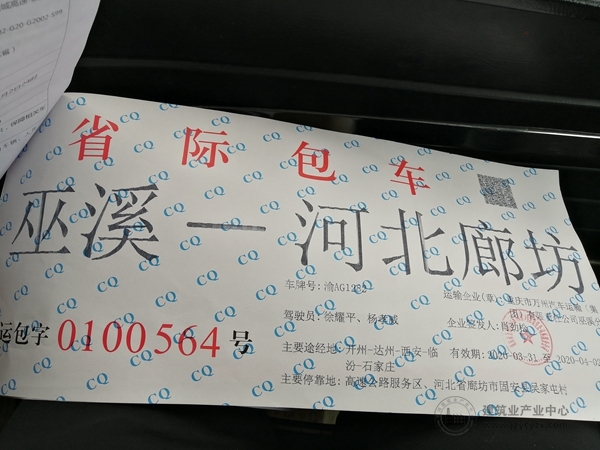 2-G20-G2002-S99
省际包车
巫溪—河北廊坊
运包字 0100564 号
车牌号:渝AG123
驾驶员:徐耀平、杨孝威
主要途经地:开州-达州-西安-临
汾-石家庄
主要停靠地:高速公路服务区、河北省廊坊市固安县吴家屯村
运输企业(章):重庆市万州汽车运输(集
企业签发人:肖劲松
有效期:2020-03-31 至 2020-04-02
CQ
建筑业产业中心